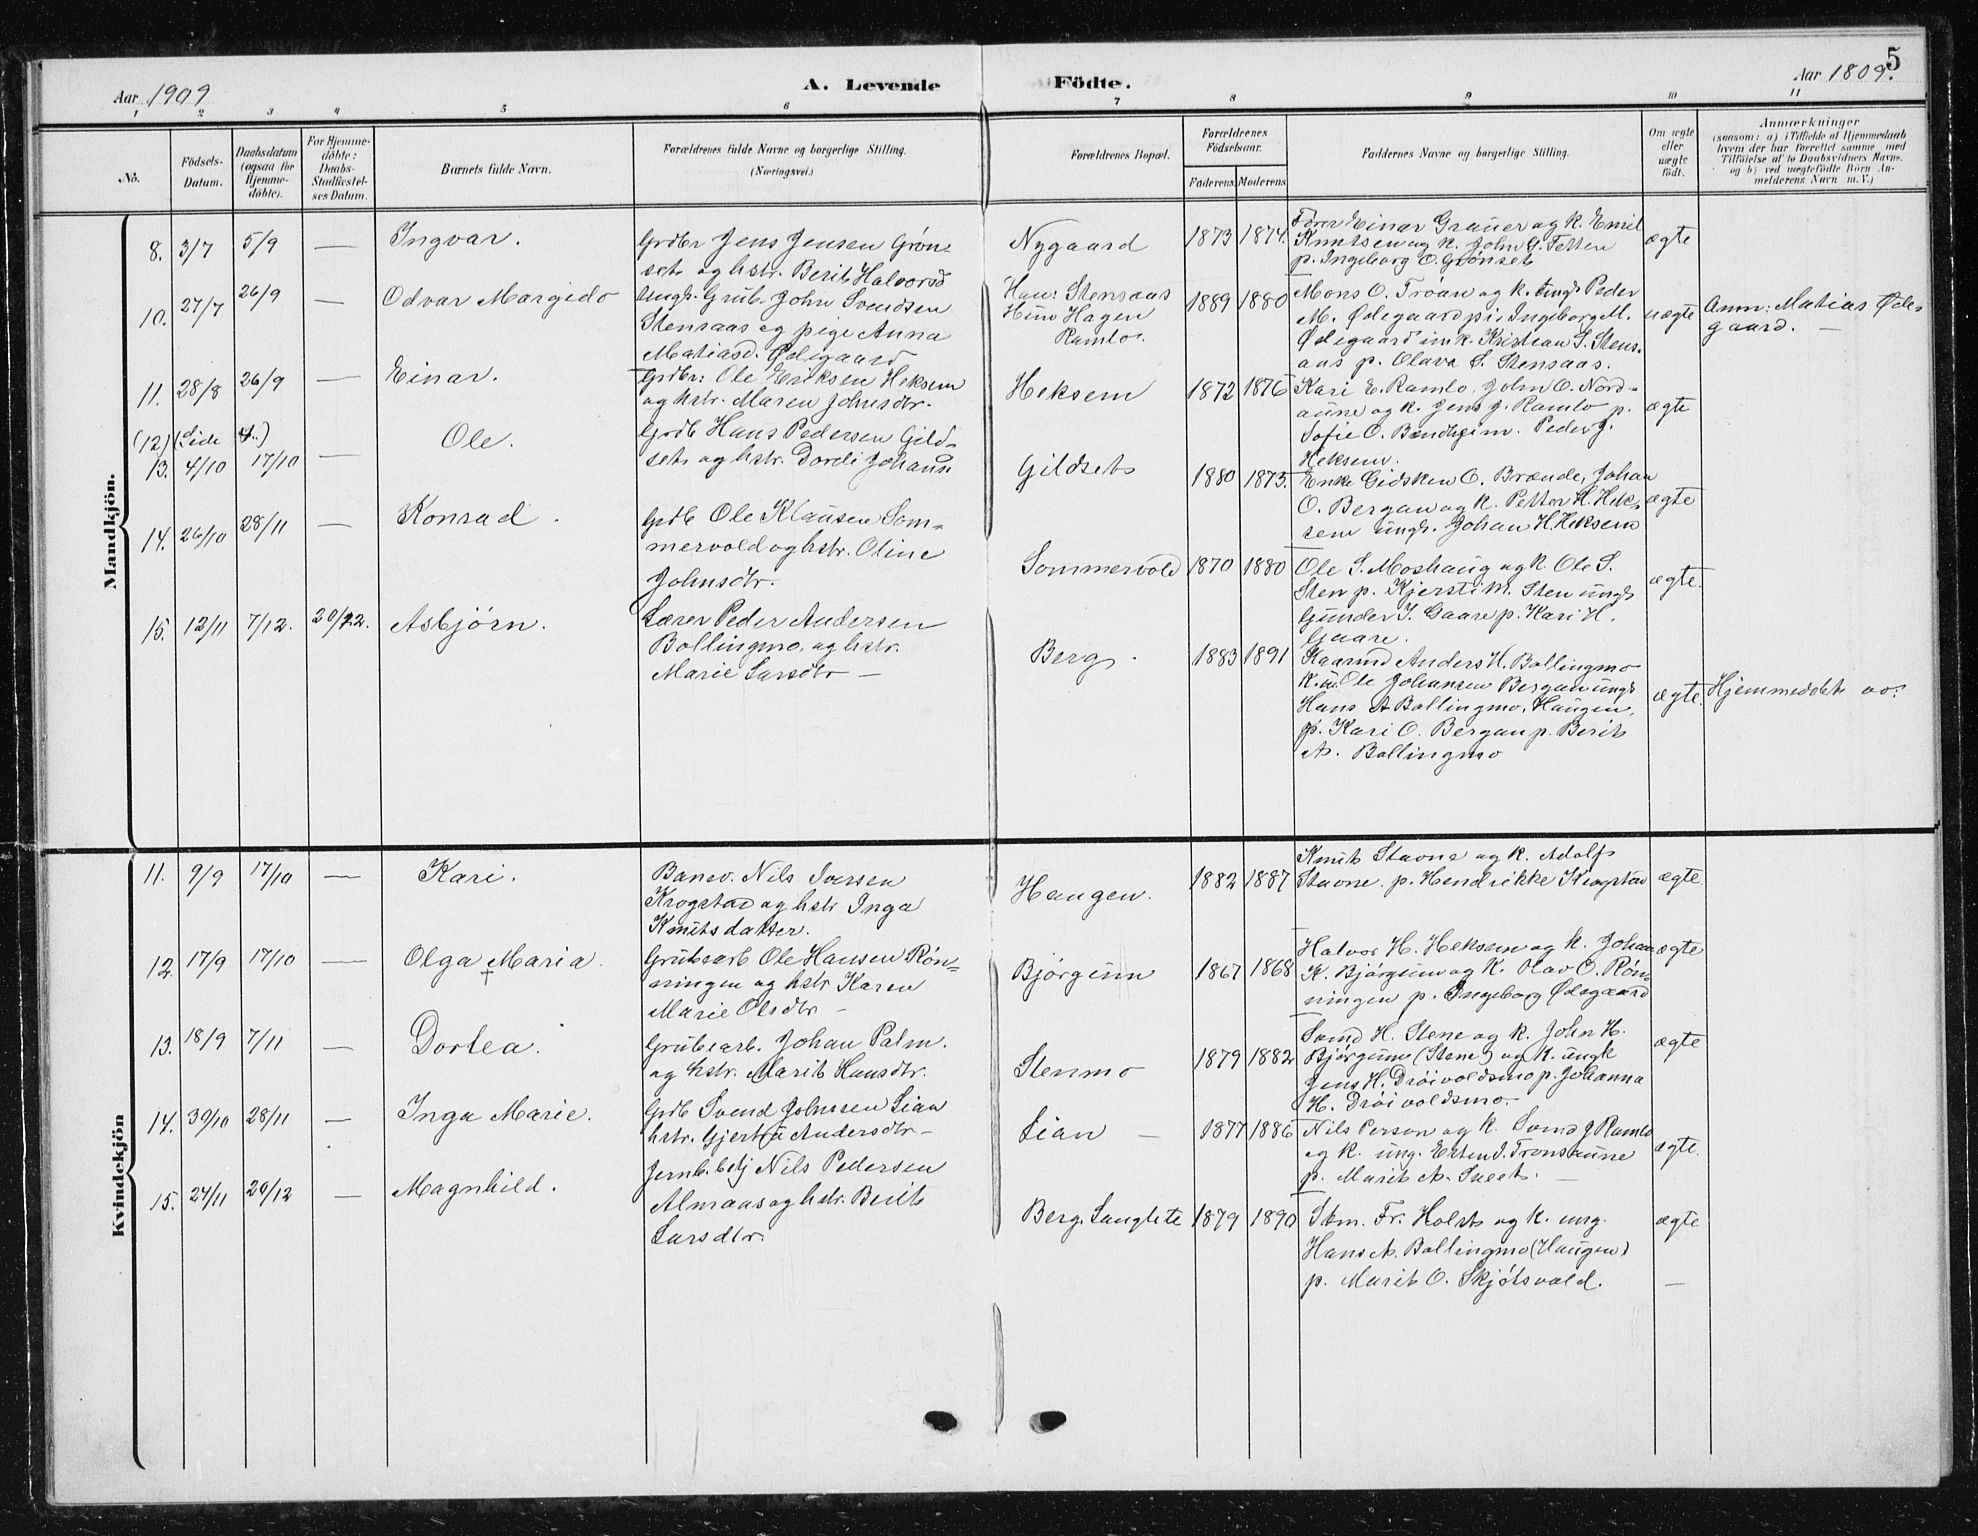 5
Aar 1909
A. Levende Födte.
Aar 1809.
1 2 3 4 5 6 7 8 9 10 11
No.
Födsels-
Datum.
Daabsdatum
(ogsaa for
Hjemme-
döbte).
For Hjemme-
döbte:
Daabs-
Stadfæstel-
ses Datum.
Barnets fulde Navn.
Forældrenes fulde Navne og borgerlige Stilling.
(Næringsvei.)
Forældrenes Bopæl.
Forældrenes
Födselsaar.
Faderens. Moderens
Faddernes Navne og borgerlige Stilling.
Om ægte
eller
uægte
födt.
Anmærkninger
(saasom: a) i Tilfælde af Hjemmedaab
hvem der har forrettet samme med
Tilföielse af to Daabsvidners Navne.
og b) ved uægtefödte Börn An-
melderens Navn m. V.)
Mandkjön.
8. 3/7 5/9 — Ingvar.
Grdbr Jens Jensen Grøn-
set og hstr. Berit Halvorsd
Nygaard
1873 1874.
Einar Grauer og k. Emil
Knutsen og k. John G. Tetten
p. Ingeborg O. Grønset
ægte
10. 27/7 26/9 — Odvar Margido
Ungk. Grub. John Svendsen
Stensaas og pige Anna
Matiasd. Ødegaard
Han: Stensaas
Hun Hagen
Ramlo.
1889 1880
Mons O. Trøan og k. ungk Peder
M. Ødegaard pi. Ingeborg M.
Ødegaard unk. Kristian S. Stens-
aas p. Olava S. Stensaas.
uægte
Anm: Matias Øde-
gaard. —
11. 28/8 26/9 — Einar.
Grdbr: Ole Eriksen Heksem
og hstr. Maren Johnsdtr.
Heksem
1872 1876
Kari E. Ramlo, John O. Nord-
aune og k. Jens J. Ramlo p.
Sofie O. Bendheim. Peder J.
Heksem.
ægte
(12) (Side 4.)
13. 4/10 17/10 — Ole.
Grdb Hans Pedersen Gild-
set og hstr. Dordi Johans
Gildset
1880 1875.
Enke Gidsken O. Brænde, Johan
O. Bergan og k. Petter H. Hek-
sem ungk. Johan H. Heksem
ægte
14. 26/10 28/11 — Konrad.
Grdb Ole Klausen Som-
mervold og hstr. Oline
Johnsdtr.
Sommervold
1870 1880
Ole S. Moshaug og k. Ole S.
Sten p. Kjersti M. Sten ungk
Gunder I. Gaare p. Kari H.
Gaare.
ægte.
15. 12/11 7/12. 20/12. Asbjørn.
Lærer Peder Andersen
Bollingmo, og hstr.
Marie Larsdtr —
Berg.
1883 1891
Gaarmd Anders H. Bollingmo
k. u. Ole Johansen Bergan ungk
Hans A Bollingmo, Haugen,
p. Kari O. Bergan p. Berit
A. Bollingmo
ægte.
Hjemmedøbt av:
Kvindekjön
11. 9/9 17/10 — Kari.
Banev. Nils Iversen
Krogstad og hstr Inga
Knutsdatter.
Haugen.
1882 1887
Knut Stavne og k. Adolf
Stavne. p. Hendrikke Krogstad
ægte.
12. 17/9 17/10 — Olga Maria.
†
Grubearb Ole Hansen Røn-
ningen og hstr Karen
Marie Olsdtr —
Bjørgum
1867 1868
Halvor H. Heksem og k. Johan
K. Bjørgum og K. Olav O. Røn-
ningen p. Ingeborg Ødegaard
ægte
13. 18/9 7/11 — Dortea.
Grubearb. Johan Palm.
og hstr. Marit Hansdtr.
Stenmo
1879 1882
Somd H. Stene og k. John H.
Bjørgum (Stene) og k. ungk
Jens H. Drøivoldsmo p. Johanna
H. Drøivoldsmo.
ægte
14. 30/10 28/11 — Inga Marie.
Grdb Svend Johnsen Lian
hstr. Gjertru Andersdtr—
Lian —
1877 1886
Nils Person og k. Somd J Ramlo
og k. ung. Esten I. Tronsaune
p. Marit A.
ægte.
15. 24/11 20/12 — Magnhild.
Jernb. betj Nils Pedersen
Almaas og hstr. Berit
Larsdtr.
Berg. Langlete
1879 1890
Skm. Fr. Holst og k. ung.
Hans A. Bollingmo (Haugen)
p. Marit O. Skjøtsvold.
ægte
—